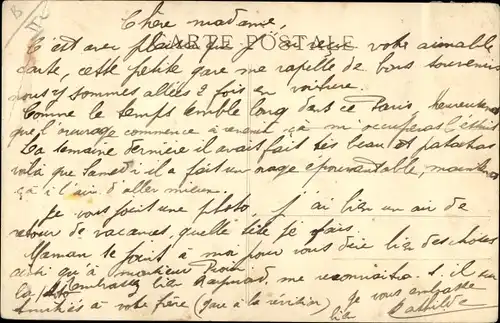 Chère madame,
CARTE POSTALE
C'est avec plaisir que j'ai reçu votre aimable
carte, cette petite gare me rapelle de bons souvenirs
nous y sommes allés 2 fois en voiture.
Comme le temps semble long dans ce Paris, heureusement
que l'ouvrage commence à revenir, ça m'occupera l'
La semaine dernière il avait fait très beau et patatras
voilà que Samedi il a fait un orage épouvantable, maintenant
ça à l'air d'aller mieux.
Je vous joint une photo, j'ai bien un air de
retour de vacances, quelle tête je fais
Maman se joint à moi pour vous dire bien des choses
ainsi qu'à monsieur
embrassez bien Raymond, me reconnaitra-t-il sur
la photo
amitiés à votre frère (gare à la révision) Je vous embrasse
bien